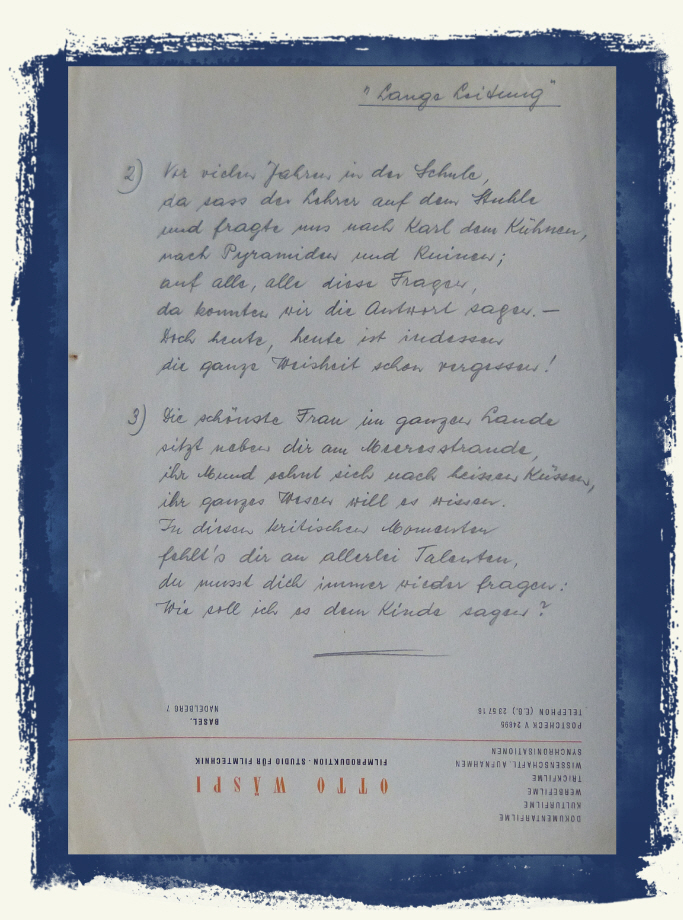 "Lange Leitung"
2) Vor vielen Jahren in der Schule,
da sass der Lehrer auf dem Stuhle
und fragte uns nach Karl dem Kühnen,
nach Pyramiden und Ruinen;
auf alle, alle diese Fragen,
da konnten wir die Antwort sagen. —
Doch heute, heute ist indessen
die ganze Weisheit schon vergessen!
3) Die schönste Frau im ganzen Lande
sitzt neben dir am Meeresstrande,
ihr Mund sehnt sich nach heissen Küssen,
ihr ganzes Wesen will es wissen.
In diesen kritischen Momenten
fehlt's dir an allerlei Talenten,
du musst dich immer wieder fragen:
Wie soll ich es dem Kinde sagen?
OTTO WÄSPI
FILMPRODUKTION · STUDIO FÜR FILMTECHNIK
DOKUMENTARFILME
KULTURFILME
WERBEFILME
TRICKFILME
WISSENSCHAFTL. AUFNAHMEN
SYNCHRONISATIONEN
BASEL,
NADELBERG 7
POSTCHECK V 24895
TELEPHON (G.) 23 57 15